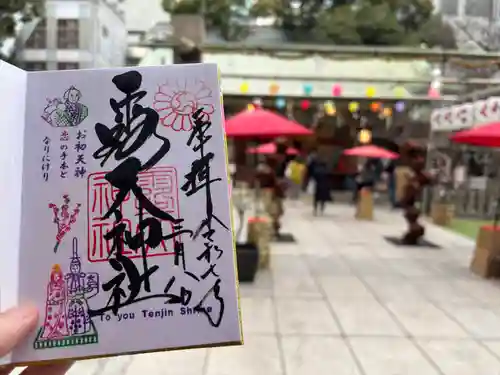 奉拝 令和七年
三月八日
露天神社
お初天神
恋の手本と
なりにけり
To you Tenjin Shrine